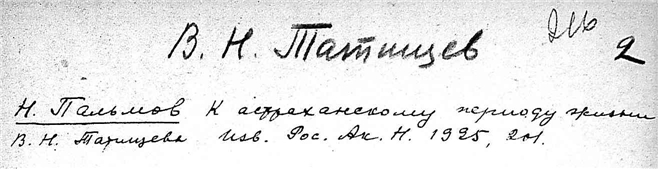 В. Н. Татищев 2
Н. Пальмов К астраханскому периоду жизни
В. Н. Татищева Изв. Рос. Ак. Н. 1925,